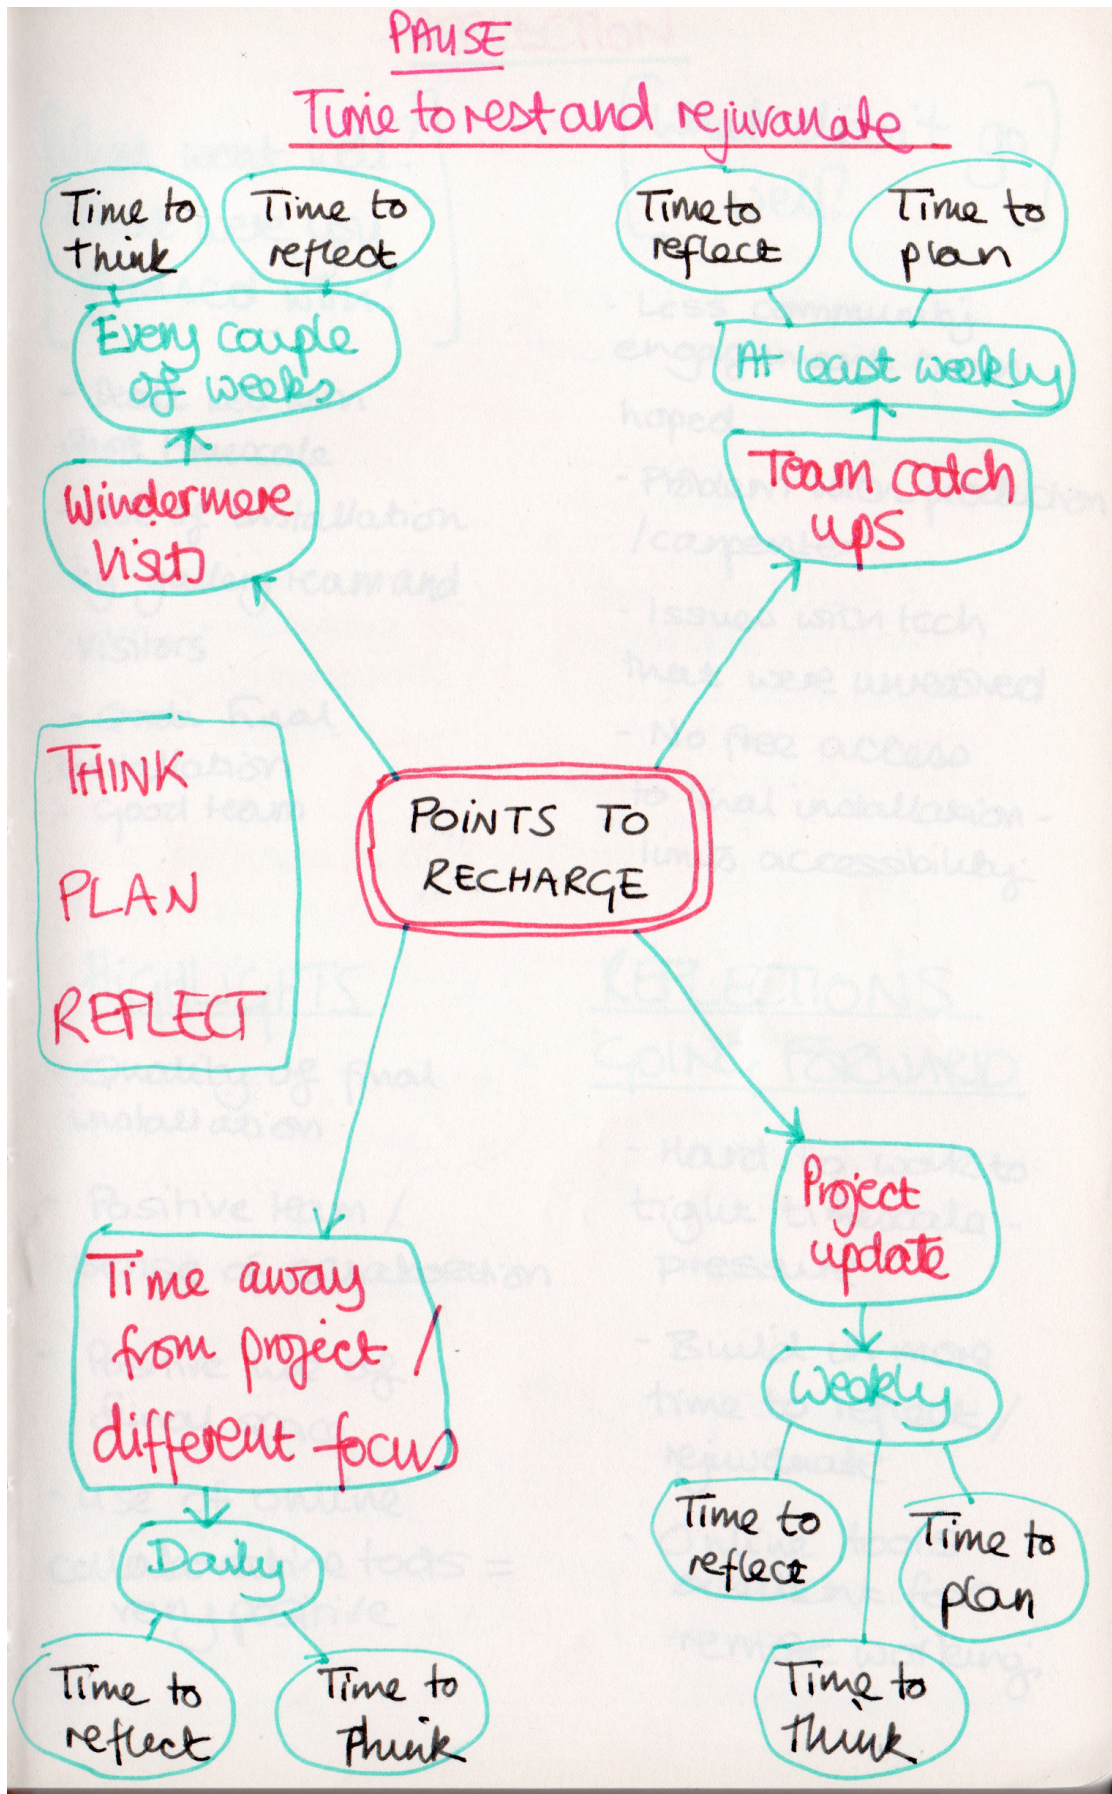 PAUSE
Time to rest and rejuvanate
Time to
think
Time to
reflect
Every couple
of weeks
Windermere
Visits
Time to
reflect
Time to
plan
At least weekly
Team catch
ups
THINK
PLAN
REFLECT
POINTS TO
RECHARGE
Time away
from project /
different focus
Daily
Time to
reflect
Time to
think
Project
update
Weekly
Time to
reflect
Time to
plan
Time to
think